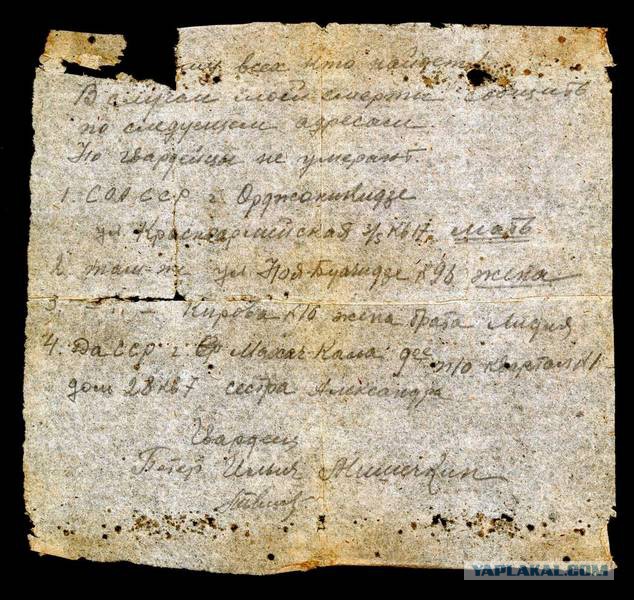 всех кто найдет
В случаи моей смерти сообщить
по следующем адресам
Но гвардейцы не умерают.
1. СОАССР г. Орджоникидзе
ул Красноармейская 3/5 кв 17. мать
2. там-же ул Ноя-Буачидзе №96 жена
3. -"- Кирова №10 жена брата Лидия
4. ДаССР г. Махач-Кала ж/о квартал №1
дом 28 кв 7 сестра Александра
Гвардеец
Петр Ильич
YAPLAKAL.COM